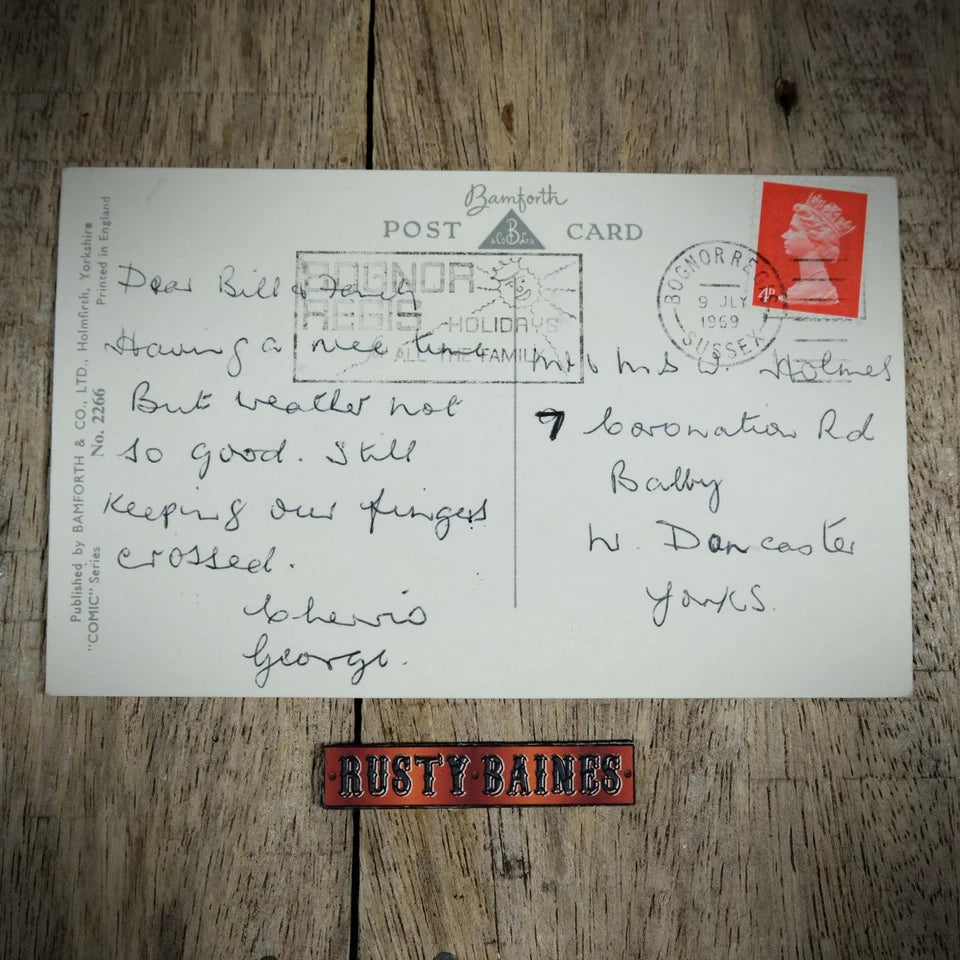 Bamforth
POST CARD
& Co B Ltd
BOGNOR
REGIS HOLIDAYS
ALL THE FAMILY
BOGNOR REGIS
9 JLY
1969
SUSSEX
4P
Dear Bill & Family
Having a nice time
But weather not
so good. Still
Keeping our fingers
crossed.
George.
Mr & Mrs W. Holmes
7 Coronation Rd
Balby
Nr. Doncaster
Yorks.
Published by BAMFORTH & CO., LTD., Holmfirth, Yorkshire
"COMIC" Series No. 2266 Printed in England
RUSTY BAINES